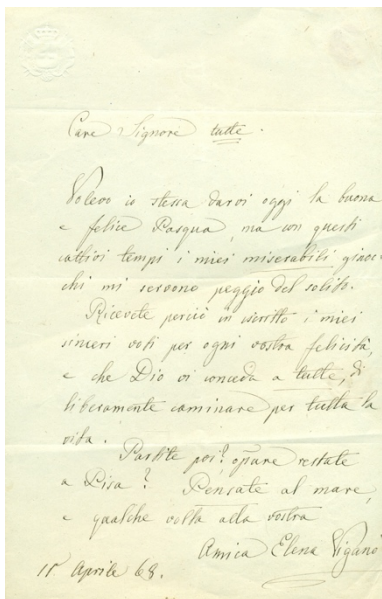 Care Signore tutte.
Volevo io stessa darvi oggi la buona
e felice Pasqua, ma con questi
cattivi tempi i miei miserabili ginoc=
chi mi servono peggio del solito.
Ricevete perciò in iscritto i miei
sinceri voti per ogni vostra felicità,
e che Dio vi conceda a tutte, di
liberamente caminare per tutta la
vita.
Partite poi? opure restate
a Pisa? Pensate al mare,
e qualche volta alla vostra
Amica Elena Viganò
11 Aprile 68.